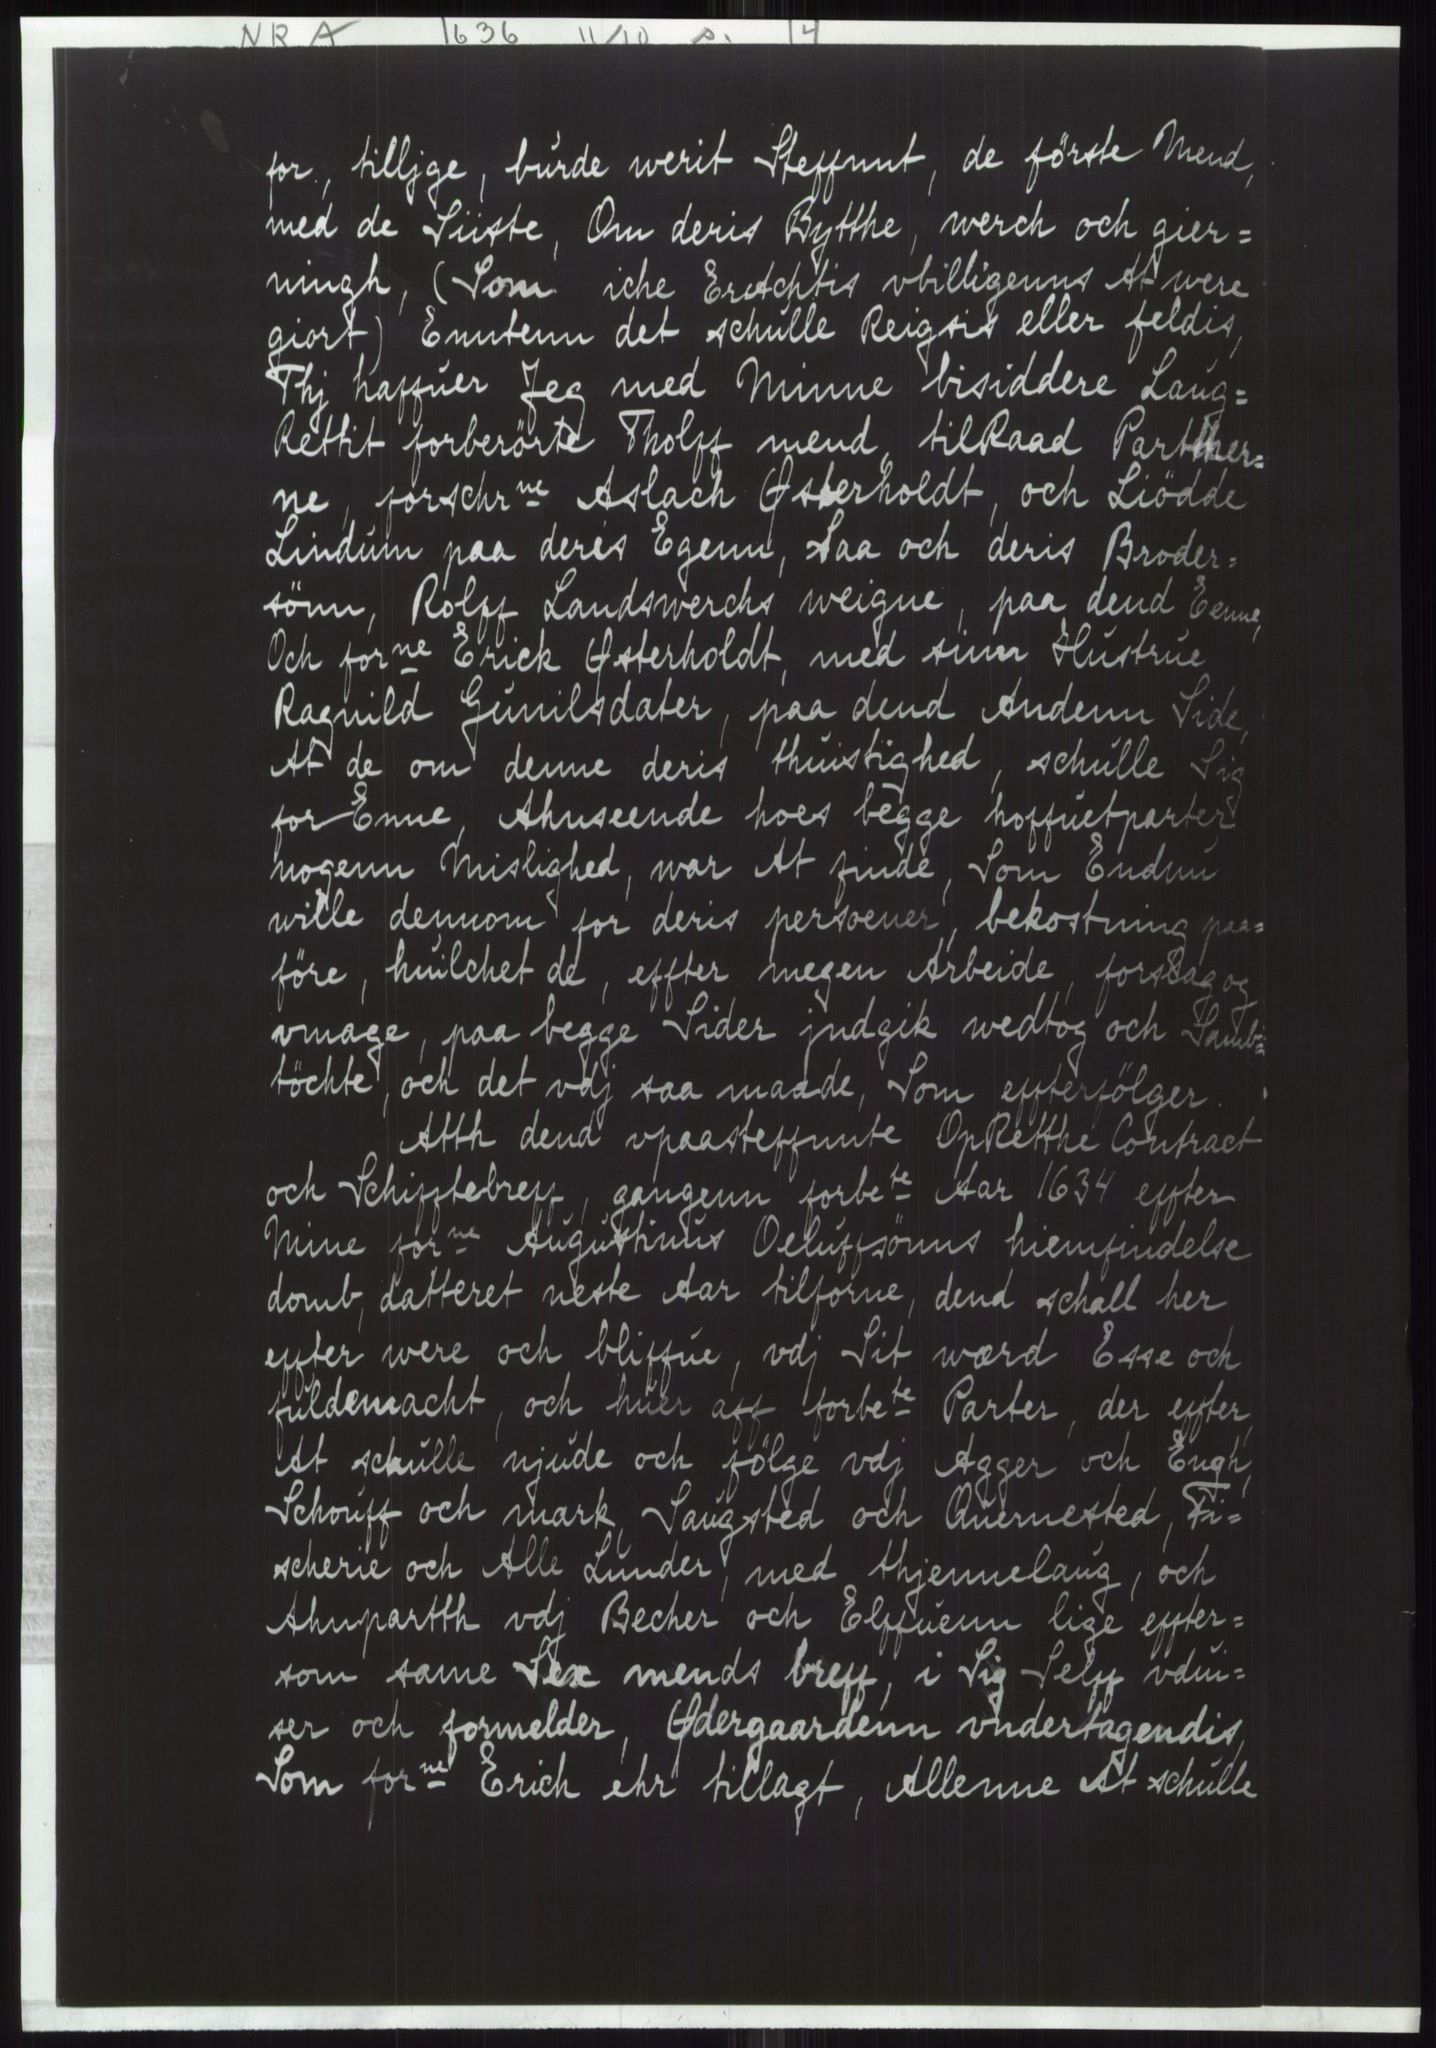 NRA 1636 11/10 s. 4
for, tilljge, burde werit Steffnnt, de förste Mend,
med de Siiste, Om deris Bytthe, werch och gier=
ningh, (Som iche Erachtis vbilligenns At were
giort) Enntenn det schulle Reigsis eller feldis,
Thj haffuer Jeg med Minne bisiddere Laug=
Rettit forberörte Tholff mend, tilRaad Partther=
ne, forschrne Aslach Østerholdt, och Liödde
Lindum paa deris Egenn, Saa och deris Broder=
sönn, Rolff Landswerchs weigne, paa dend Eenne,
Och forne Erick Østerholdt, med sinn Hustrue
Ragnild Gunilsdater, paa dend Andenn Side,
At de om denne deris thuistighed, schulle Sig
for Enne, Ahnseende hoes begge hoffuetparter
nogenn Mislighed, war At finde, Som Endnu
wille dennom for deris persoener, bekostning paa=
före, huilchet de, effter megen Arbeide, forslag og
vmage, paa begge Sider jndgik wedtog och Samb=
töchte, och det vdj saa maade, Som effterfölger.
Atth dend vpaasteffnnte OpRetthe Contract
och Schifftebreff, gangenn forbete Aar 1634 effter
Mine forne Augustinus Oeluffsönns hiemfindelse
domb, datteret neste Aar tilforne, dend schall her
effter were och bliffue, vdj Sit wærd Esse och
fuldemacht, och huer aff forbete Parter, der effter,
At schulle njude och fölge vdj Agger och Engh,
Schouff och mark, Saugsted och Quernested, Fi=
scherie och Alle Lunder, med thjennelaug, och
Ahnpartth vdj Becher och Elffuenn lige effter=
som same Sex mends breff, i Sig Selff vdui=
ser och formelder, Ødergaardenn vndertagendis,
Som forne Erich ehr tillagt, Allenne At schulle